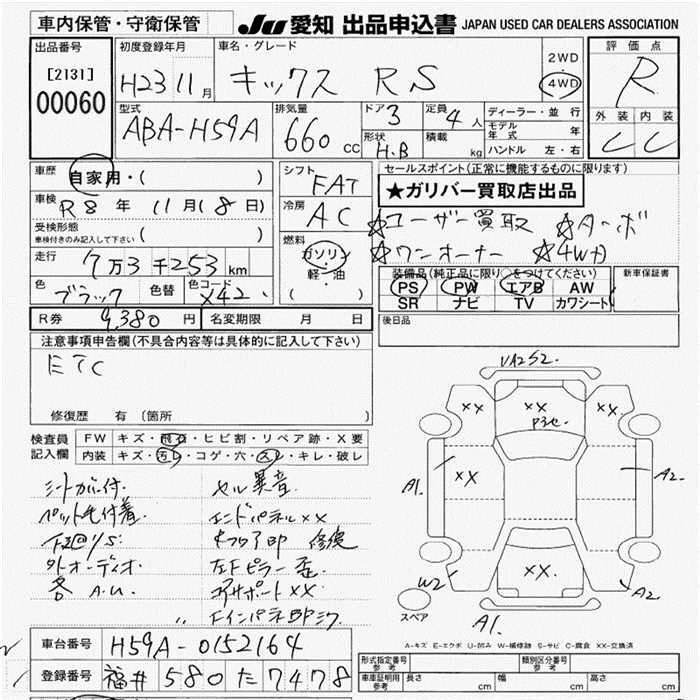 車内保管・守衛保管
JU 愛知 出品申込書 JAPAN USED CAR DEALERS ASSOCIATION
出品番号
[2131]
00060
初度登録年月
H23 11月
車名・グレード
キックス RS
2WD
4WD
評価点
R
外装 内装
C C
型式
ABA-H59A
排気量
660 cc
ドア
3
形状
H.B
定員
4人
積載
kg
ディーラー・並行
モデル年式 年
ハンドル 左・右
車歴
自家用・( )
車検
R8年 11月(8日)
受検形態
車検付きのみ記入して下さい ( )
走行
7万3千253km
色
ブラック
色替
色コード
X42
シフト
FAT
冷房
AC
燃料
ガソリン
軽・油
( )
セールスポイント(正常に機能するものに限ります)
★ガリバー買取店出品
☆ユーザー買取 ☆ターボ
☆ワンオーナー ☆4WD
装備品(純正品に限り○をつけてください)
PS PW エアB AW
SR ナビ TV カワシート
新車保証書
後日品
R券 9,380円
名変期限 月 日
注意事項申告欄(不具合内容等は具体的に記入して下さい)
ETC
修復歴 有(箇所
検査員
記入欄
FW キズ・飛石・ヒビ割・リペア跡・X要
内装 キズ・汚レ・コゲ・穴・スレ・キレ・破レ
シートカバー付
ペット毛付着
下廻りS
外オーディオ
各A.U.
セル異音
エンドパネルXX
修復
左Fピラー歪
コアサポートXX
VA2S2.
XX
XX
P3セ
XX
XX
A1.
A2.
XX
W2
A2
A1.
スペア
A-キズ E-エクボ U-凹み W-補修跡 S-サビ C-腐食 XX-交換済
車台番号 H59A-0152164
登録番号 福井 580 た 7478
形式指定番号
参考
類別区分番号
参考
車庫証明用
参考
長さ cm 幅 cm 高さ cm